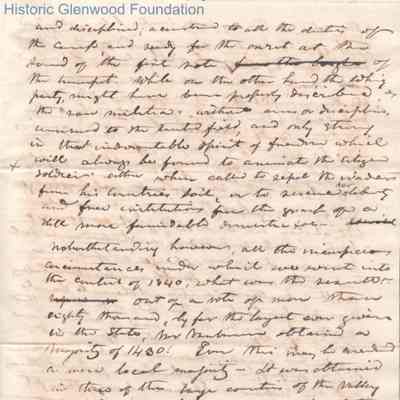 Historic Glenwood Foundation
and disciplined, accustomed to all the duties of
the camp and ready for the onset at the
sound of the first note of
the trumpet. While on the other hand the whig
party, might have been properly described, as
the raw militia, without arms or discipline,
unused to the tented field, and only strong
in that indomitable spirit of freedom which
will always be found to animate the citizen
soldier either when called to repel the invaders
from his countries soil, or to rescue her liberty
and free institutions from the grasp of a
still more formidable domestic foe.
Notwithstanding however, all the inauspicious
circumstances under which we went into
the contest of 1840, what was the result?
out of a vote of more than
eighty thousand, by far the largest ever given
in the State, Mr Van Buren obtained a
Majority of 1430! Even this may be
a mere local majority - It was obtained
in three of the large counties of the Valley